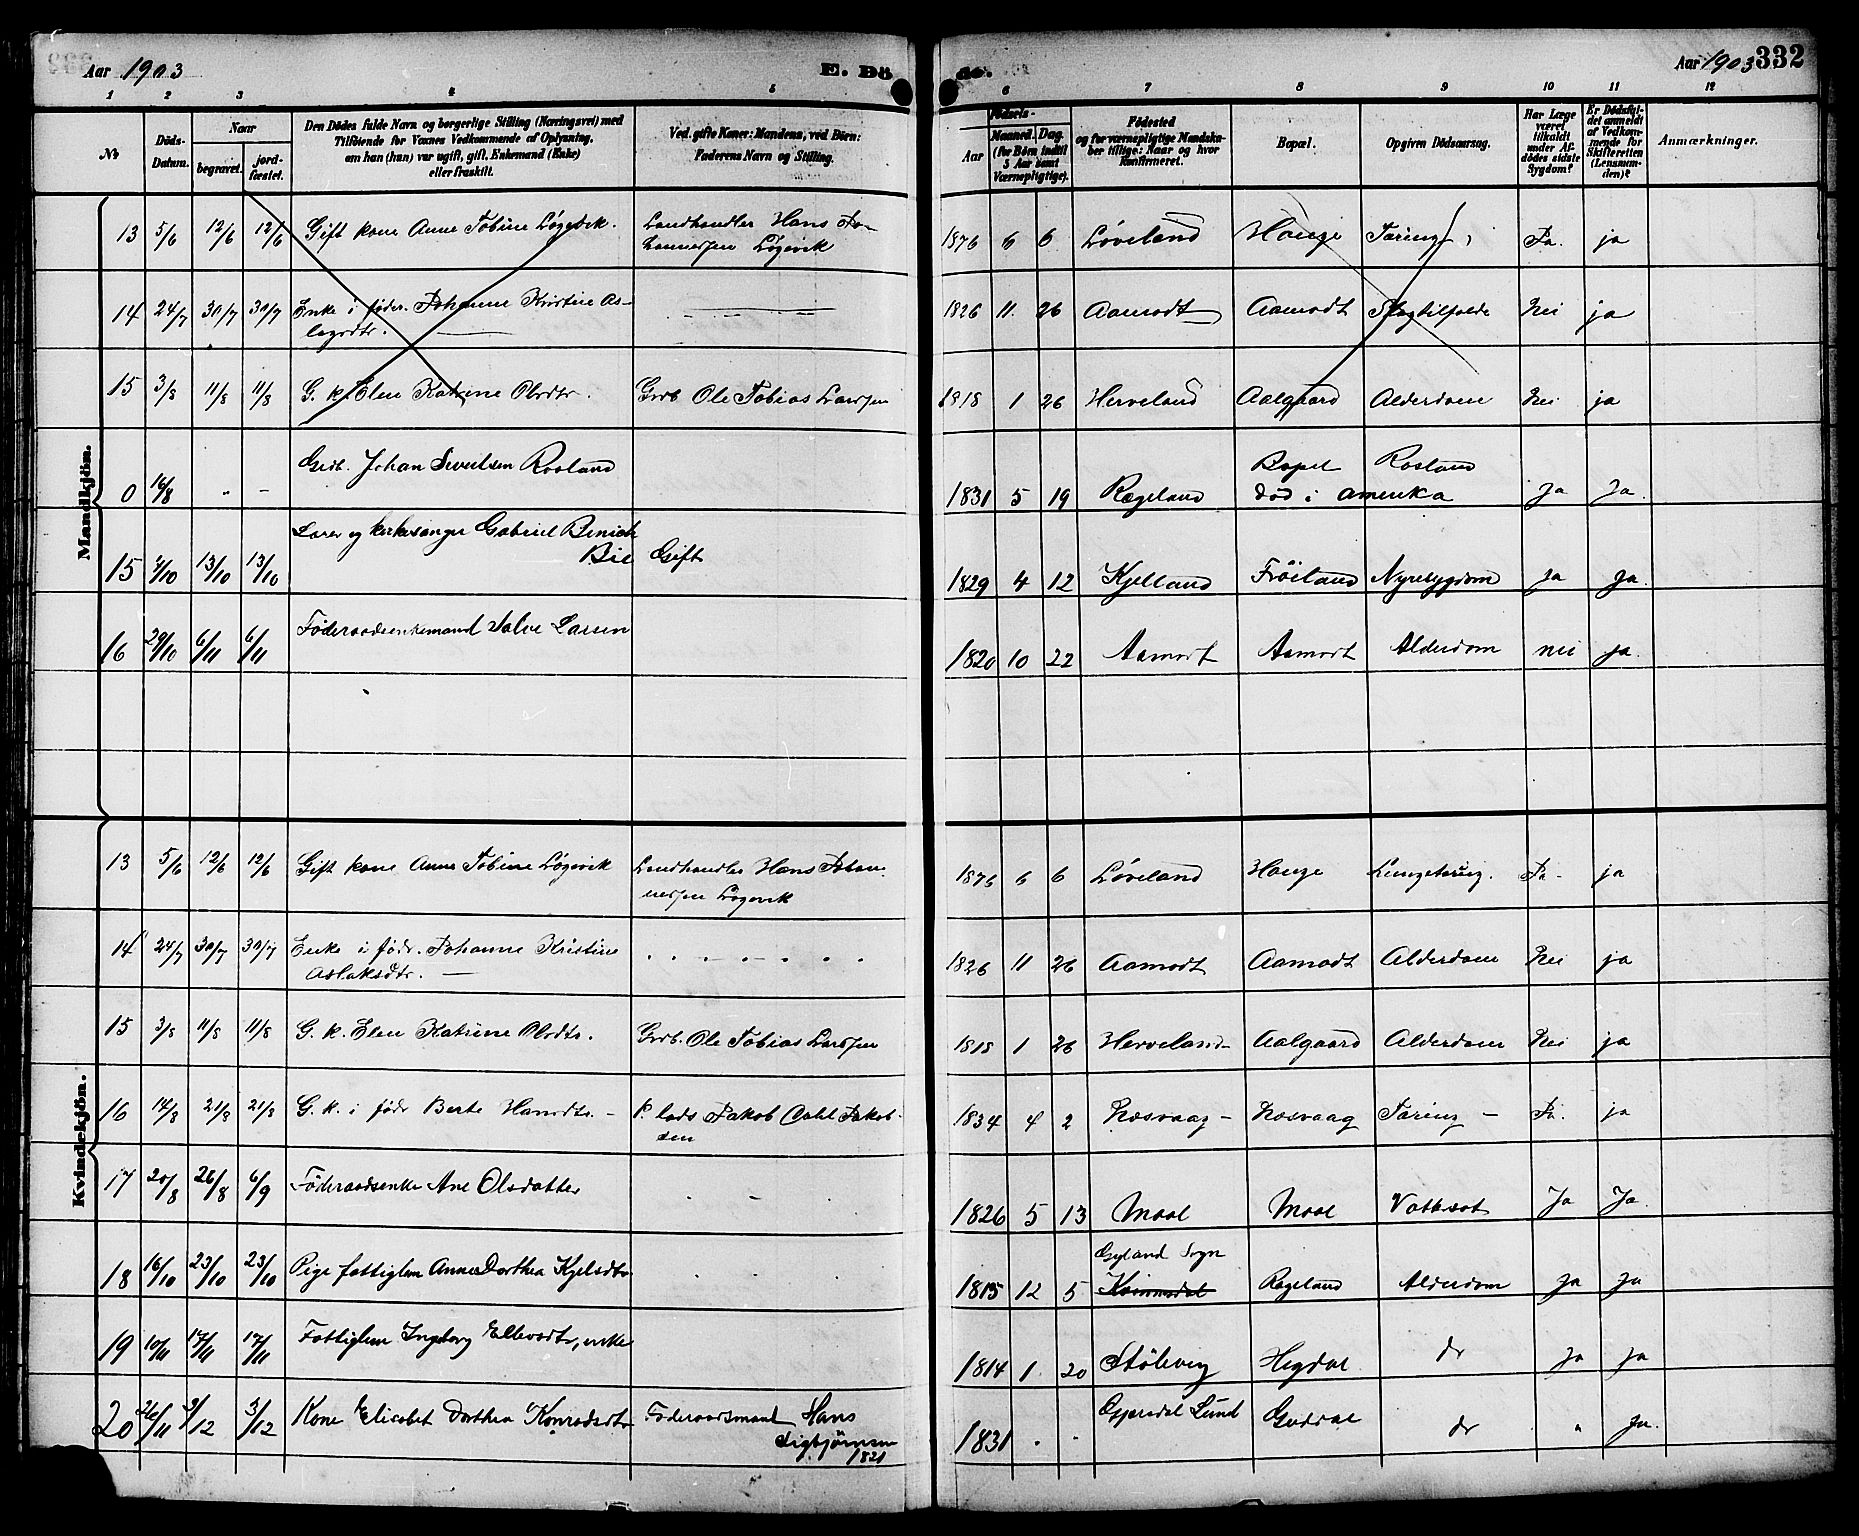 Aar 1903
E. Dö
de.
Aar 1903 332
1 2 3 4 5 6 7 8 9 10 11 12
No
Döds-Datum.
Naar
begravet.
jordfæstet.
Den Dödes fulde Navn og borgerlige Stilling (Næringsvei) med
Tilföiende for Voxnes Vedkommende af Oplysning,
om han (hun) var ugift, gift, Enkemand (Enke)
eller fraskilt.
Ved gifte Koner: Mandens, ved Börn:
Faderens Navn og Stilling.
Födsels-
Aar
Maaned. Dag.
(for Börn indtil
5 Aar samt
Værnepligtige).
Födested
og for værnepligtige Mandska-
ber tillige: Naar og hvor
konfirmeret.
Bopæl.
Opgiven Dödsaarsag.
Har Læge
været
tilkaldt
under Af-
dödes sidste
Sygdom?
Er Dödsfal-
det anmeldt
af Vedkom-
mende for
Skifteretten
(Lensman-
den)?
Anmærkninger.
Mandkjön.
13 5/6 12/6 12/6 Gift kone Anne Tobine Løgevik. Landhandler Hans Jo- 1876 6 6 Løveland Hauge Tæring Ja. ja
hannessen Løgevik
14 24/7 30/7 30/7 Enke i føder. Johanne Kristine As- 1826 11. 26 Aamodt Aamodt Slagtilfælde Nei ja
lagsdtr.
15 3/8 11/8 11/8 G. k. Elen Katrine Olsdtr. Grdb. Ole Tobias Larssen 1818 1 26 Herveland Aalgaard Alderdom Nei ja
0 16/8 " - Grdb. Johan Sivertsen Rosland 1831 5 19 Rægeland Bopel Rosland
død i Amerika Ja Ja.
15 4/10 13/10 13/10 Lærer og kirkesanger Gabriel Beniah
Bie Gift 1829 4 12 Kjelland Fröiland Nyresygdom Ja Ja.
16 29/10 6/11 6/11 Föderaadsenkemand Salve Larsen 1820 10 22 Aamodt Aamodt Alderdom nei ja.
Kvindekjön.
13 5/6 12/6 12/6 Gift kone Anne Tobine Løgevik Landhandler Hans Johan- 1876 6 6 Løveland Hauge Lungetæring. Ja- ja
nessen Løgevik
14 24/7 30/7 30/7 Enke i fødr. Johanne Kristine 1826 11 26 Aamodt Aamodt Alderdom Nei ja
Aslaksdtr.
15 3/8 11/8 11/8 G. k. Elen Katrine Olsdtr. Grdb. Ole Tobias Larssen 1818 1 26 Herveland Aalgaard Alderdom Nei ja
16 14/8 21/8 21/8 G. k. i fødr Berte Hansdtr. - P. lads Jakob Jakob- 1834 4 2 Rosvaag - Rosvaag Tæring - Ja. ja
sen
17 20/8 26/8 6/9 Föderaadsenke Ane Olsdatter 1826 5 13 Moal Moal Vattersot Ja Ja.
18 16/10 23/10 23/10 Pige fattiglem Anne Dorthea Kjelsdtr 1815 12 5 Gyland Sogn
Kvinesdal Rægeland Alderdom Ja Ja
19 10/11 17/11 17/11 Fattiglem Ingeborg Ellevsdtr, enke 1814 1. 20 Stölevig Hegdal do Ja ja
20 26/11 3/12 3/12 Kone Elisabet Dorthea Konradsdtr Föderaadsmand Hans 1831 . . Gjersdal Lund Guddal do " Ja.
Sigbjörnsen
1821